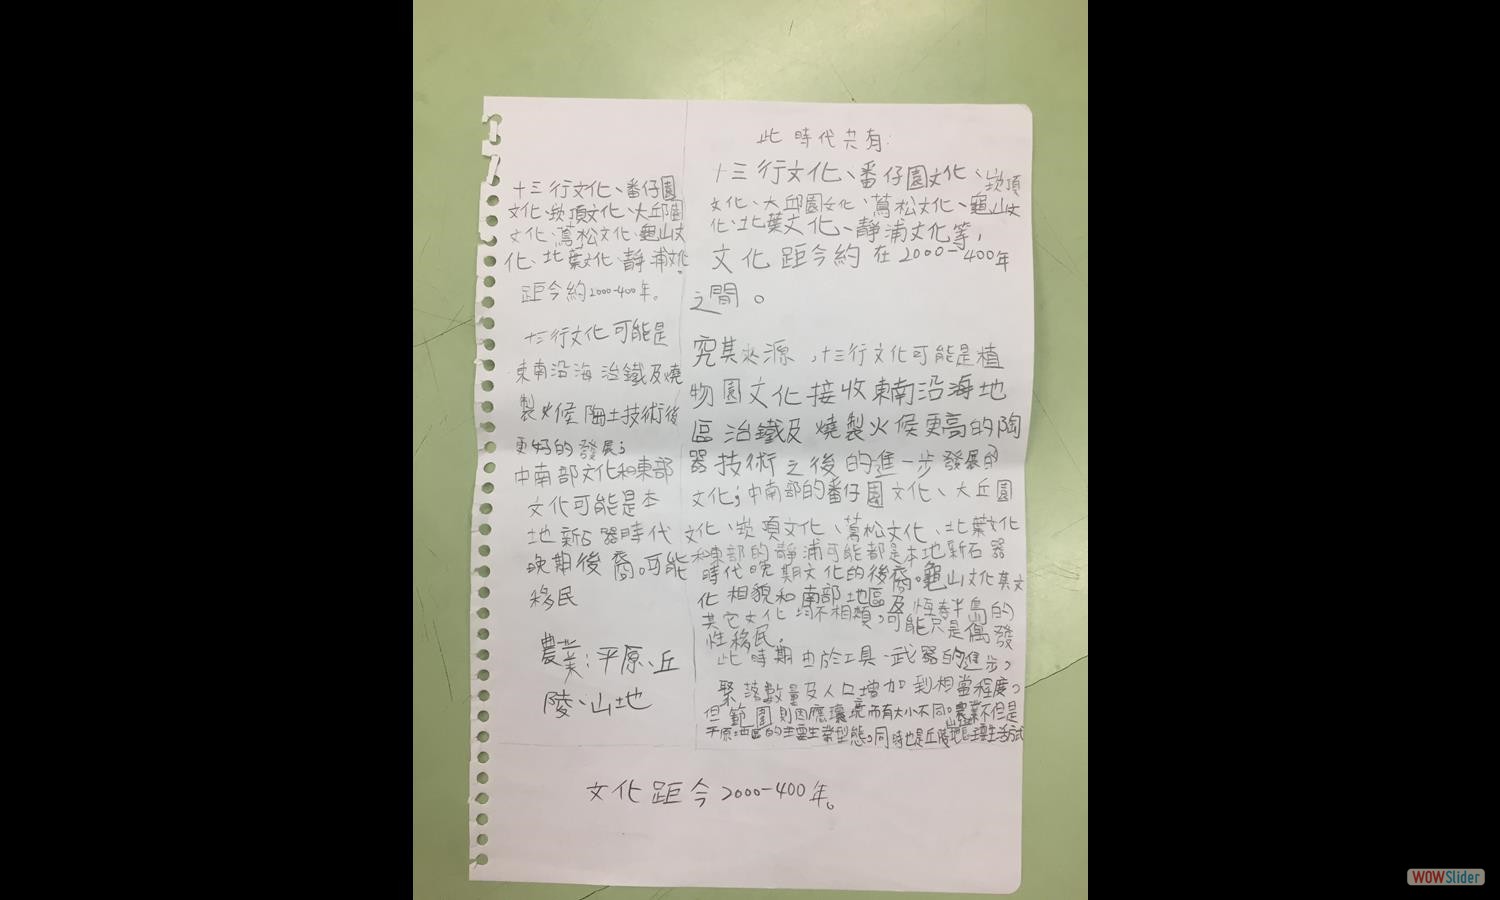 十三行文化、番仔園
文化、崁頂文化、大邱園
文化、蔦松文化、龜山文
化、北葉文化、靜浦文化,
距今約2000-400年。
十三行文化可能是
東南沿海冶鐵及燒
製火候陶土技術後
更好的發展;
中南部文化和東部
文化可能是本
地新石器時代
晚期後裔。可能
移民
農業:平原、丘
陵、山地
此時代共有:
十三行文化、番仔園文化、崁頂
文化、大邱園文化、蔦松文化、龜山文
化、北葉文化、靜浦文化等,
文化距今約在2000-400年
之間。
究其來源,十三行文化可能是植
物園文化接收東南沿海地
區冶鐵及燒製火候更高的陶
器技術之後的進一步發展的
文化;中南部的番仔園文化、大丘園
文化、崁頂文化、蔦松文化、北葉文化
和東部的靜浦可能都是本地新石器
時代晚期文化的後裔。龜山文化其文
化相貌和南部地區及恆春半島的
其它文化均不相類,可能只是偶發
性移民。
此時期由於工具、武器的進步,
聚落數量及人口增加到相當程度,
但範圍則因應環境而有大小不同。農業不但是
平原地區的主要生業型態,同時也是丘陵山地區主要生活方式
文化距今2000-400年。
WOWSlider